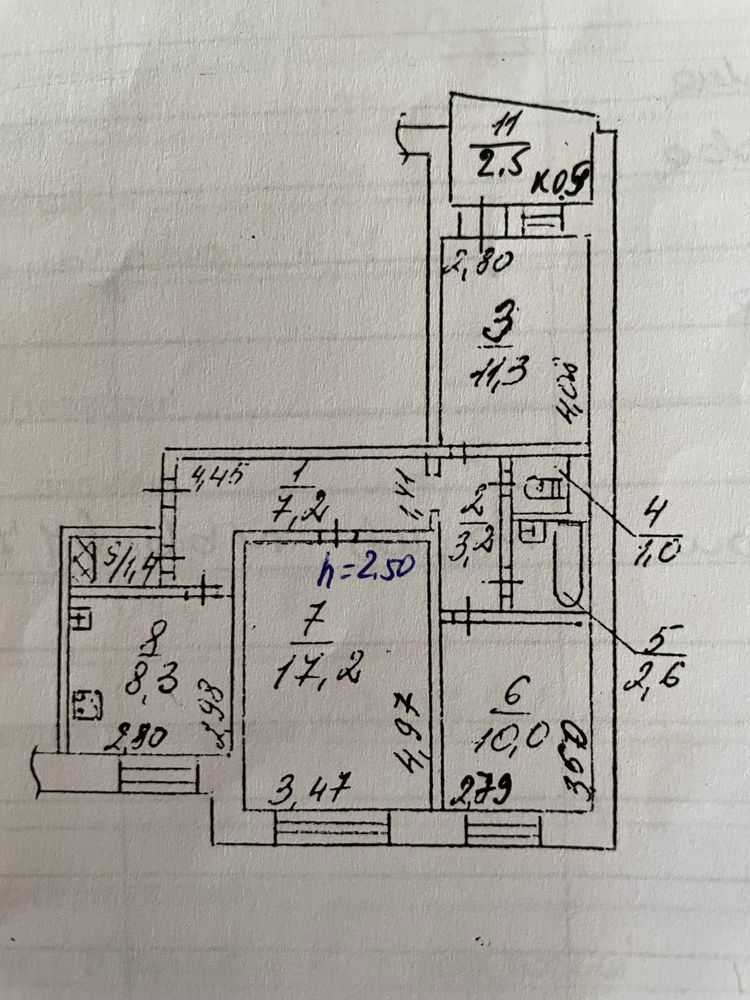 11
2.5
коф
2,80
3
11,3
4,05
4,45
1
7,2
1,41
2
3,2
4
1,0
5/1,4
h=2.50
7
17,2
5
2,6
8
8,3
2,98
2,80
6
10,0
4,97
3,47
2,79
3,50